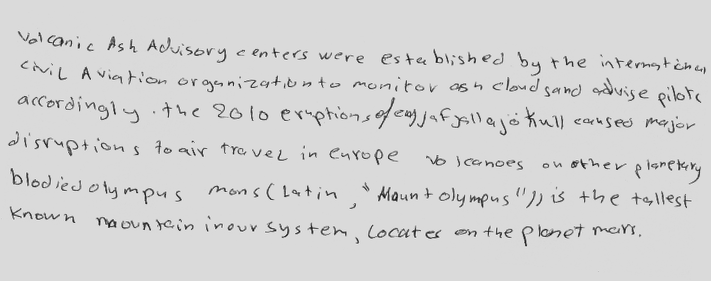 Volcanic Ash Advisory centers were established by the international
civil Aviation organization to monitor ash cloudsand advise pilots
accordingly. the 2010 eruptions of eyjjafjallajökull caused major
disruptions to air travel in europe volcanoes on other planetary
blodied olympus mons (Latin, "Mount olympus")) is the tallest
Known mountain inour system, Locates on the planet mars.